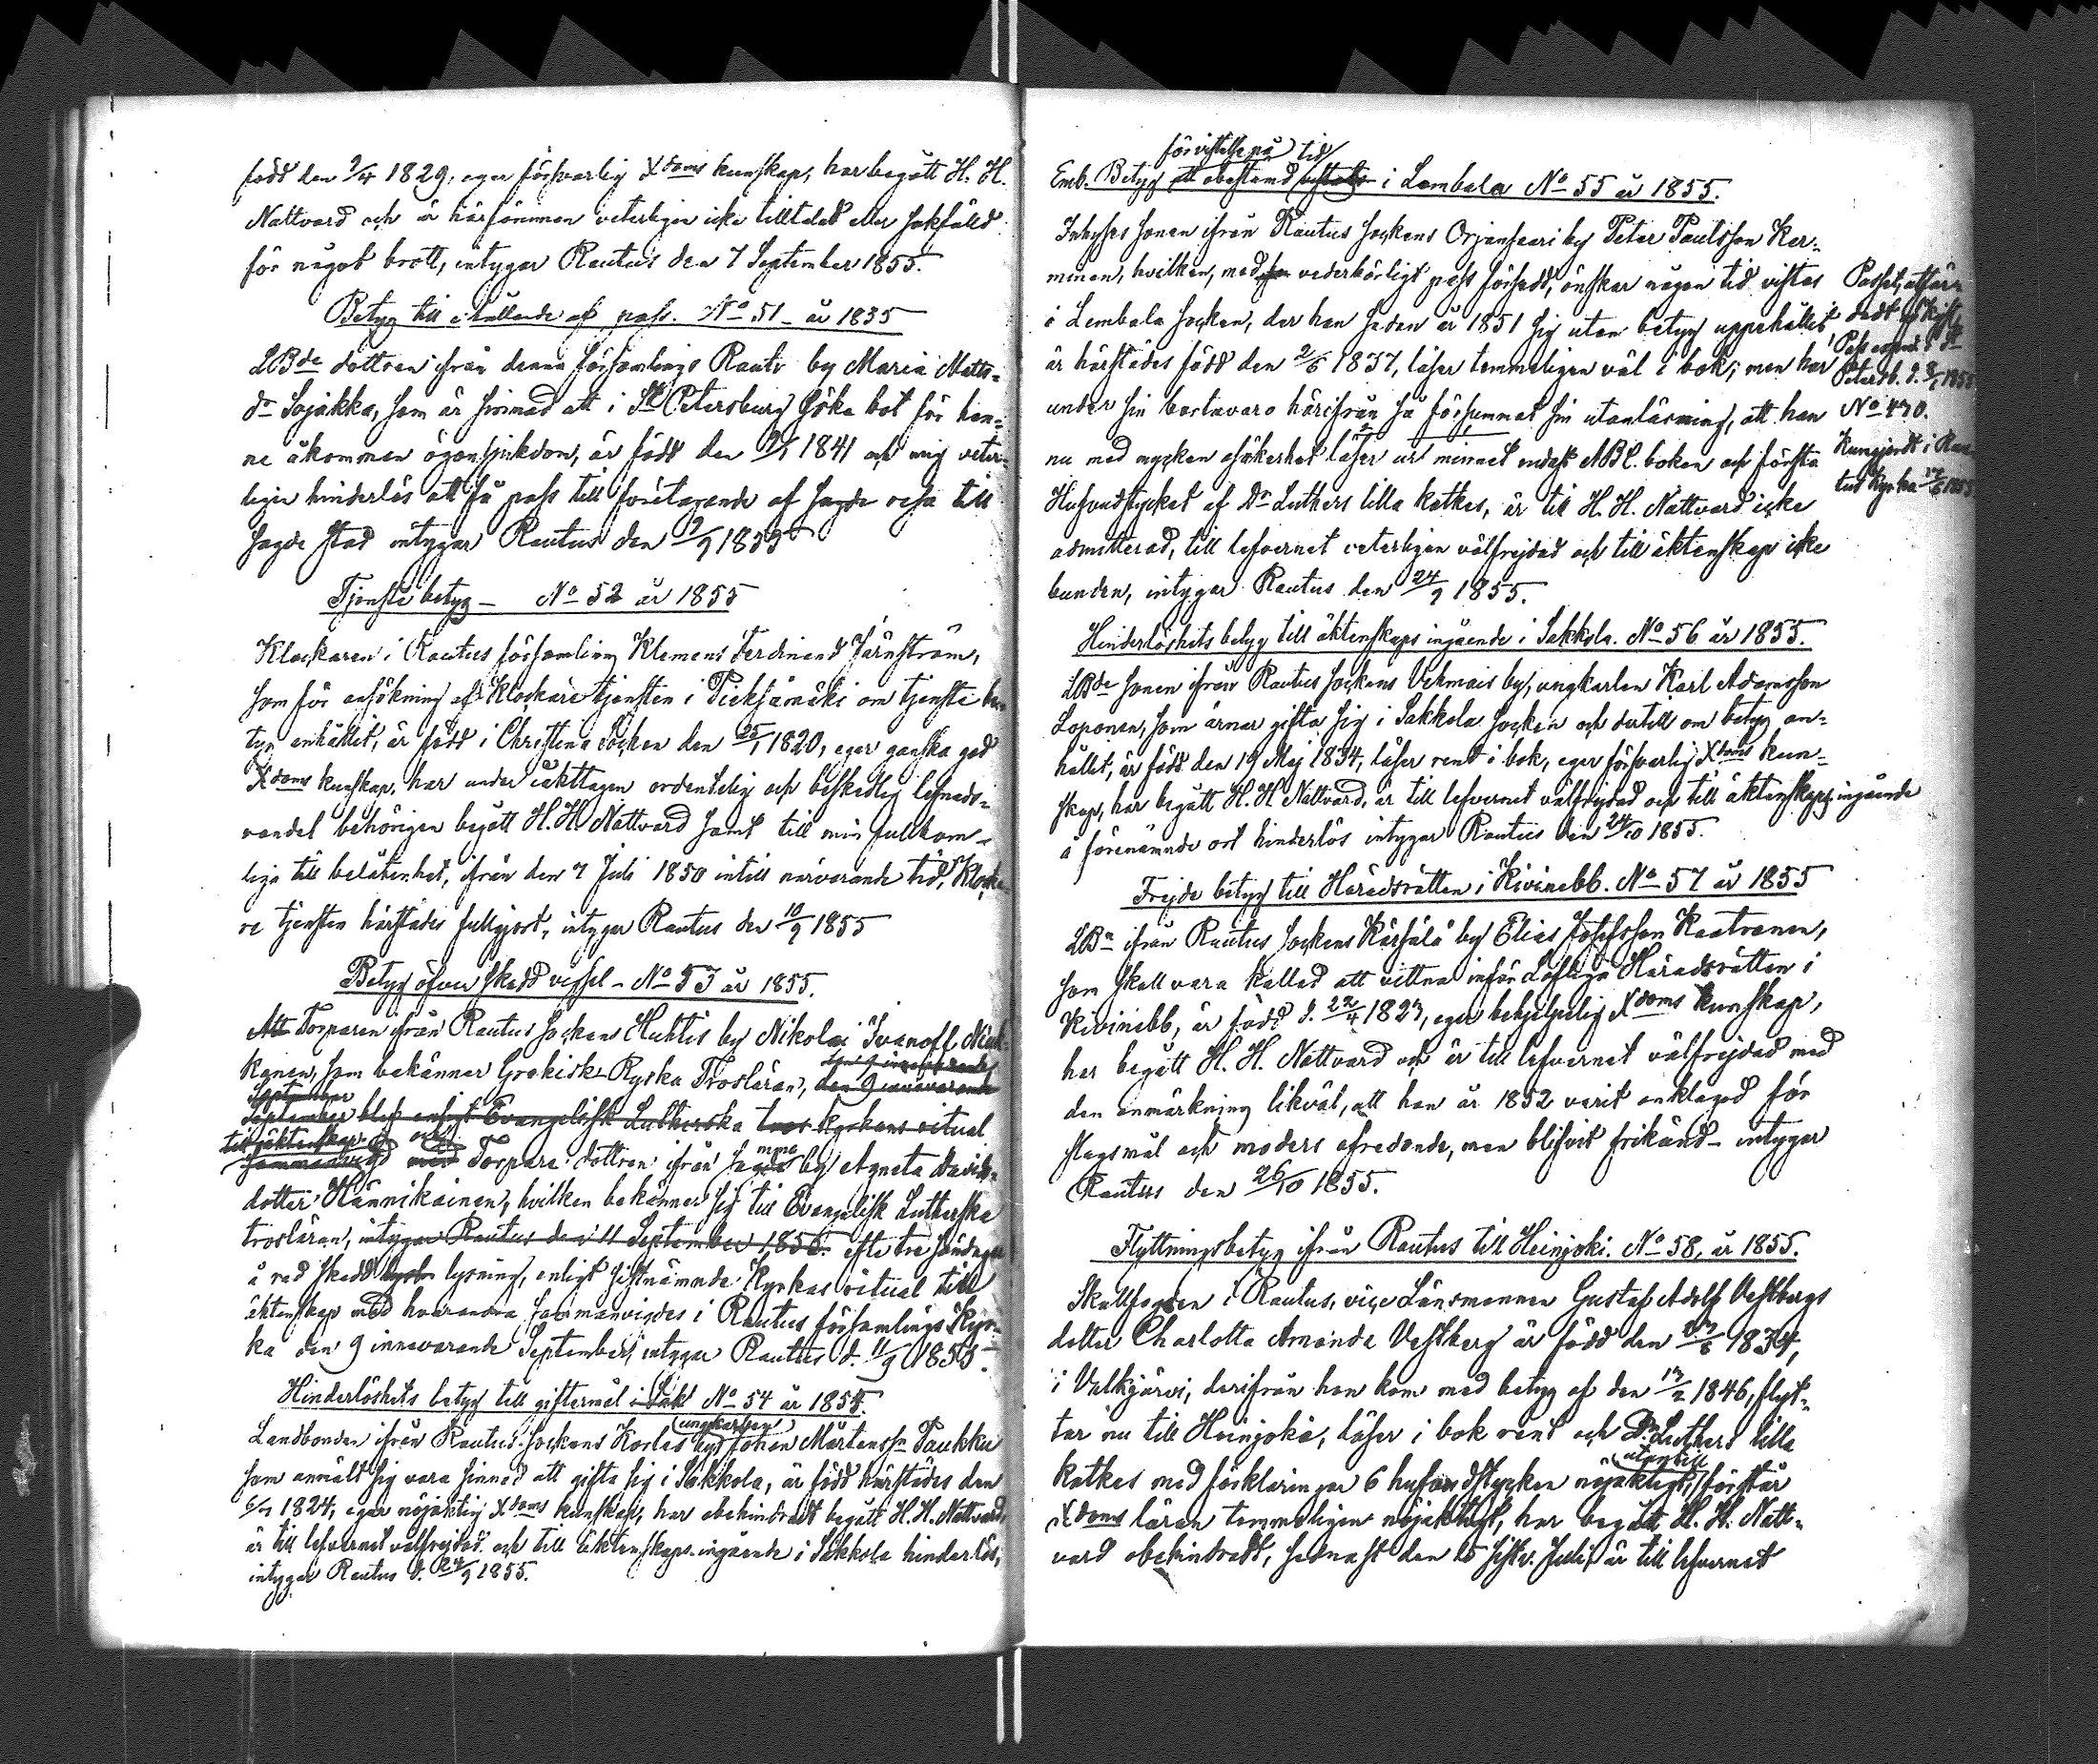 född den 9/4 1829, eger försvarlig Xdoms kunskap, har begått H. H.
Nattvard och är härförinnan veterligen icke tilltalad eller sakfälld
för något brott, intygar Rautus den 7 September 1855.
Betyg till erhållande af pass. No 51 - år 1855
LBde dottren ifrån denna församlings Rautu by Maria Matts-
dr Sojakka, som är sinnad att i St Petersburg söka bot för hen-
ne åkommen ögonsjukdom, är född den 1841 och mig veter-
ligen hinderlös att få pass till företagande af sagde resa till
sagde stad intygar Rautus den 9/9 1855
Tjenste betyg - No 52 år 1855
Klockaren i Rautus församling Klemens Ferdinand Järnström,
som för ansökning af Klockare tjensten i Pieksämäki om tjenste be-
tyg anhållit, är född i Christina Socken den 25/1 1820, eger ganska god
Xdoms kunskap, har under iakttagen ordentelig och beskedlig lefnads-
vandel behörigen begått H. H. Nattvard samt till min fullkom-
liga till belåtenhet, ifrån den 7 Juli 1850 intill närvarande tid, Klocka-
re tjensten härstädes fullgjort, intygar Rautus den 10/9 1855
Betyg öfver skedd vigsel - No 53 år 1855.
Att Torparen ifrån Rautus Socken Huhtis by Nikolai Ivanoff
kanen, som bekänner Grekisk-Ryska Trosläran, den 9 innevarande
September
September blef enligt Evangelisk Lutherska tros kyrkans ritual
till äktenskap och
sammanvigd med Torpare dottren ifrån samma by Agneta Davids-
dotter Hännikäinen, hvilken bekänner sig till Evangelisk Lutherska
trosläran, intygar Rautus den 11 September 1855. efter tre söndagar
å rad skedd lysning, enligt sistnämnde Kyrkas ritual till
äktenskap med hvarandra sammanvigdes i Rautus församlings Kyr-
ka den 9 innevarande September, intygar Rautus d. 11/9 1855.
Hinderlöshets betyg till giftermål i Sak No 54 år 1855.
(ungkarlen)
Landbonden ifrån Rautus Sockens Korles by Johan Mårtensson Paukku
som anmält sig vara sinnad att gifta sig i Sakkola, är född härstädes den
1824, eger nöjaktig Xdoms kunskap, har obehindradt begått H. H. Nattvard,
är till lefvernet välfrejdad och till äktenskaps ingående i Sakkola hinderlös,
intygar Rautus d. 24/9 1855.
för vistelse på tid
Emb. Betyg att obestämd vistats i Lembala No 55 år 1855.
Inhyses sonen ifrån Rautus Sockens Orjansaari by Peter Paulsson Ker-
minen, hvilken, med vederbörligt pass försedd, önskar någon tid vistas
i Lembala Socken, der han sedan år 1851 sig utan betyg uppehållit,
är härstädes född den 2/6 1837, läser temmeligen väl i bok; men har
under sin bortavaro härifrån så försummat sin utanläsning, att han
nu med mycken osäkerhet läser ur minnet endast ABC. boken och första
Hufvudstycket af Dr Luthers lilla kathes, är till H. H. Nattvard icke
admitterad, till lefvernet veterligen välfrejdad och till äktenskap icke
bunden, intygar Rautus den 24/9 1855.
Passet, utfär-
dadt
Petersb. d. 1855
No 470.
Kungjordt i Rau-
tus Kyrka 1855
Hinderlöshets betyg till äktenskaps ingående i Sakkola. No 56 år 1855.
LBde sonen ifrån Rautus Sockens Vehmais by, ungkarlen Karl Adamsson
Loponen, som ärnar gifta sig i Sakkola Socken och dertill om betyg an-
hållit, är född den 19 Maj 1834, läser rent i bok, eger försvarlig Xdoms kun-
skap, har begått H. H. Nattvard, är till lefvernet välfrejdad och till äktenskaps ingående
å förenämnde ort hinderlös intygar Rautus den 24/10 1855.
Frejde betyg till Häradsrätten i Kivinebb. No 57 år 1855
LBn ifrån Rautus Sockens Kärsälä by Elias Josefsson Kaatranen,
som skall vara kallad att vittna inför Lofliga Häradsrätten i
Kivinebb, är född d. 22/4 1823, eger behjelpelig Xdoms kunskap,
har begått H. H. Nattvard och är till lefvernet välfrejdad med
den anmärkning likväl, att han år 1852 varit anklagad för
slagsmål och moders ofredande, men blifvit frikänd - intygar
Rautus den 26/10 1855.
Flyttningsbetyg ifrån Rautus till Heinjoki. No 58, år 1855.
Skallfogden i Rautus, vice Länsmannen Gustaf Adolf Vestbergs
dotter Charlotta Amanda Vestberg är född den 1834,
i Valkjärvi, derifrån hon kom med betyg af den 17/2 1846, flyt-
tar nu till Heinjoki, läser i bok rent och Dr Luthers lilla
utantill
kathes med förklaringar 6 hufvudstycken nöjaktigt, förstår
Xdoms läran temmeligen nöjaktigt, har begått H. H. Natt-
vard obehindradt, sednast den 15 sistl. Juli, är till lefvernet